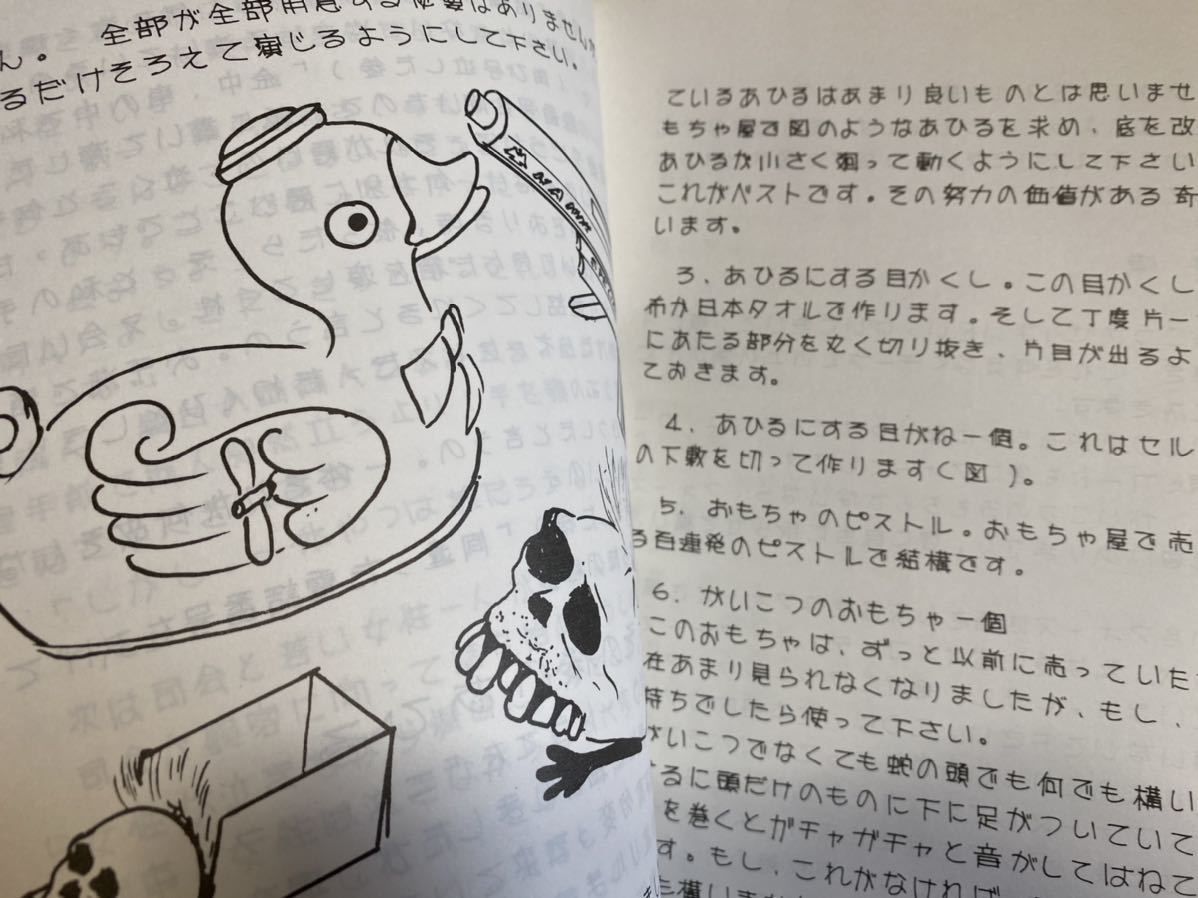 全部が全部用意する必要はありませんが
ん。
るだけそろえて演じるようにして下さい。
ているあひるはあまり良いものとは思いませ
もちゃ屋で図のようなあひるを求め、底を改
あひるが小さく廻って動くようにして下さい
これがベストです。その努力の価値がある奇
います。
3．あひるにする目かくし。この目かくし
布か日本タオルで作ります。そして丁度片一
にあたる部分を丸く切り抜き、片目が出るよ
ておきます。
4．あひるにする目がね一個。これはセル
の下敷を切って作ります（図）。
5．おもちゃのピストル。おもちゃ屋で売
る百連発のピストルで結構です。
6．がいこつのおもちゃ一個
このおもちゃは、ずっと以前に売っていた
在あまり見られなくなりましたが、もし、
持ちでしたら使って下さい。
がいこつでなくても蛇の頭でも何でも構い
するに頭だけのものに下に足がついていて
を巻くとガチャガチャと音がしてはねて
す。もし、これがなければ、